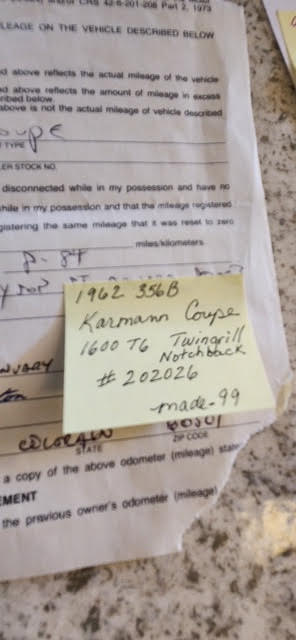 CRS 42-6-201-206 Part 2, 1973
LEAGE ON THE VEHICLE DESCRIBED BELOW
ed above reflects the actual mileage of the vehicle
ed above reflects the amount of mileage in excess
cribed below.
above is not the actual mileage of vehicle described
oupe
TYPE
LER STOCK NO.
disconnected while in my possession and have no
while in my possession and that the mileage registered
gistering the same mileage that it was reset to zero
miles/kilometers.
1962 356B
Karmann Coupe
1600 T6 Twingrill
Notchback
# 202026
made-99
COLORADO
STATE
ZIP CODE
a copy of the above odometer (mileage) state
EMENT
the previous owner's odometer (mileage)